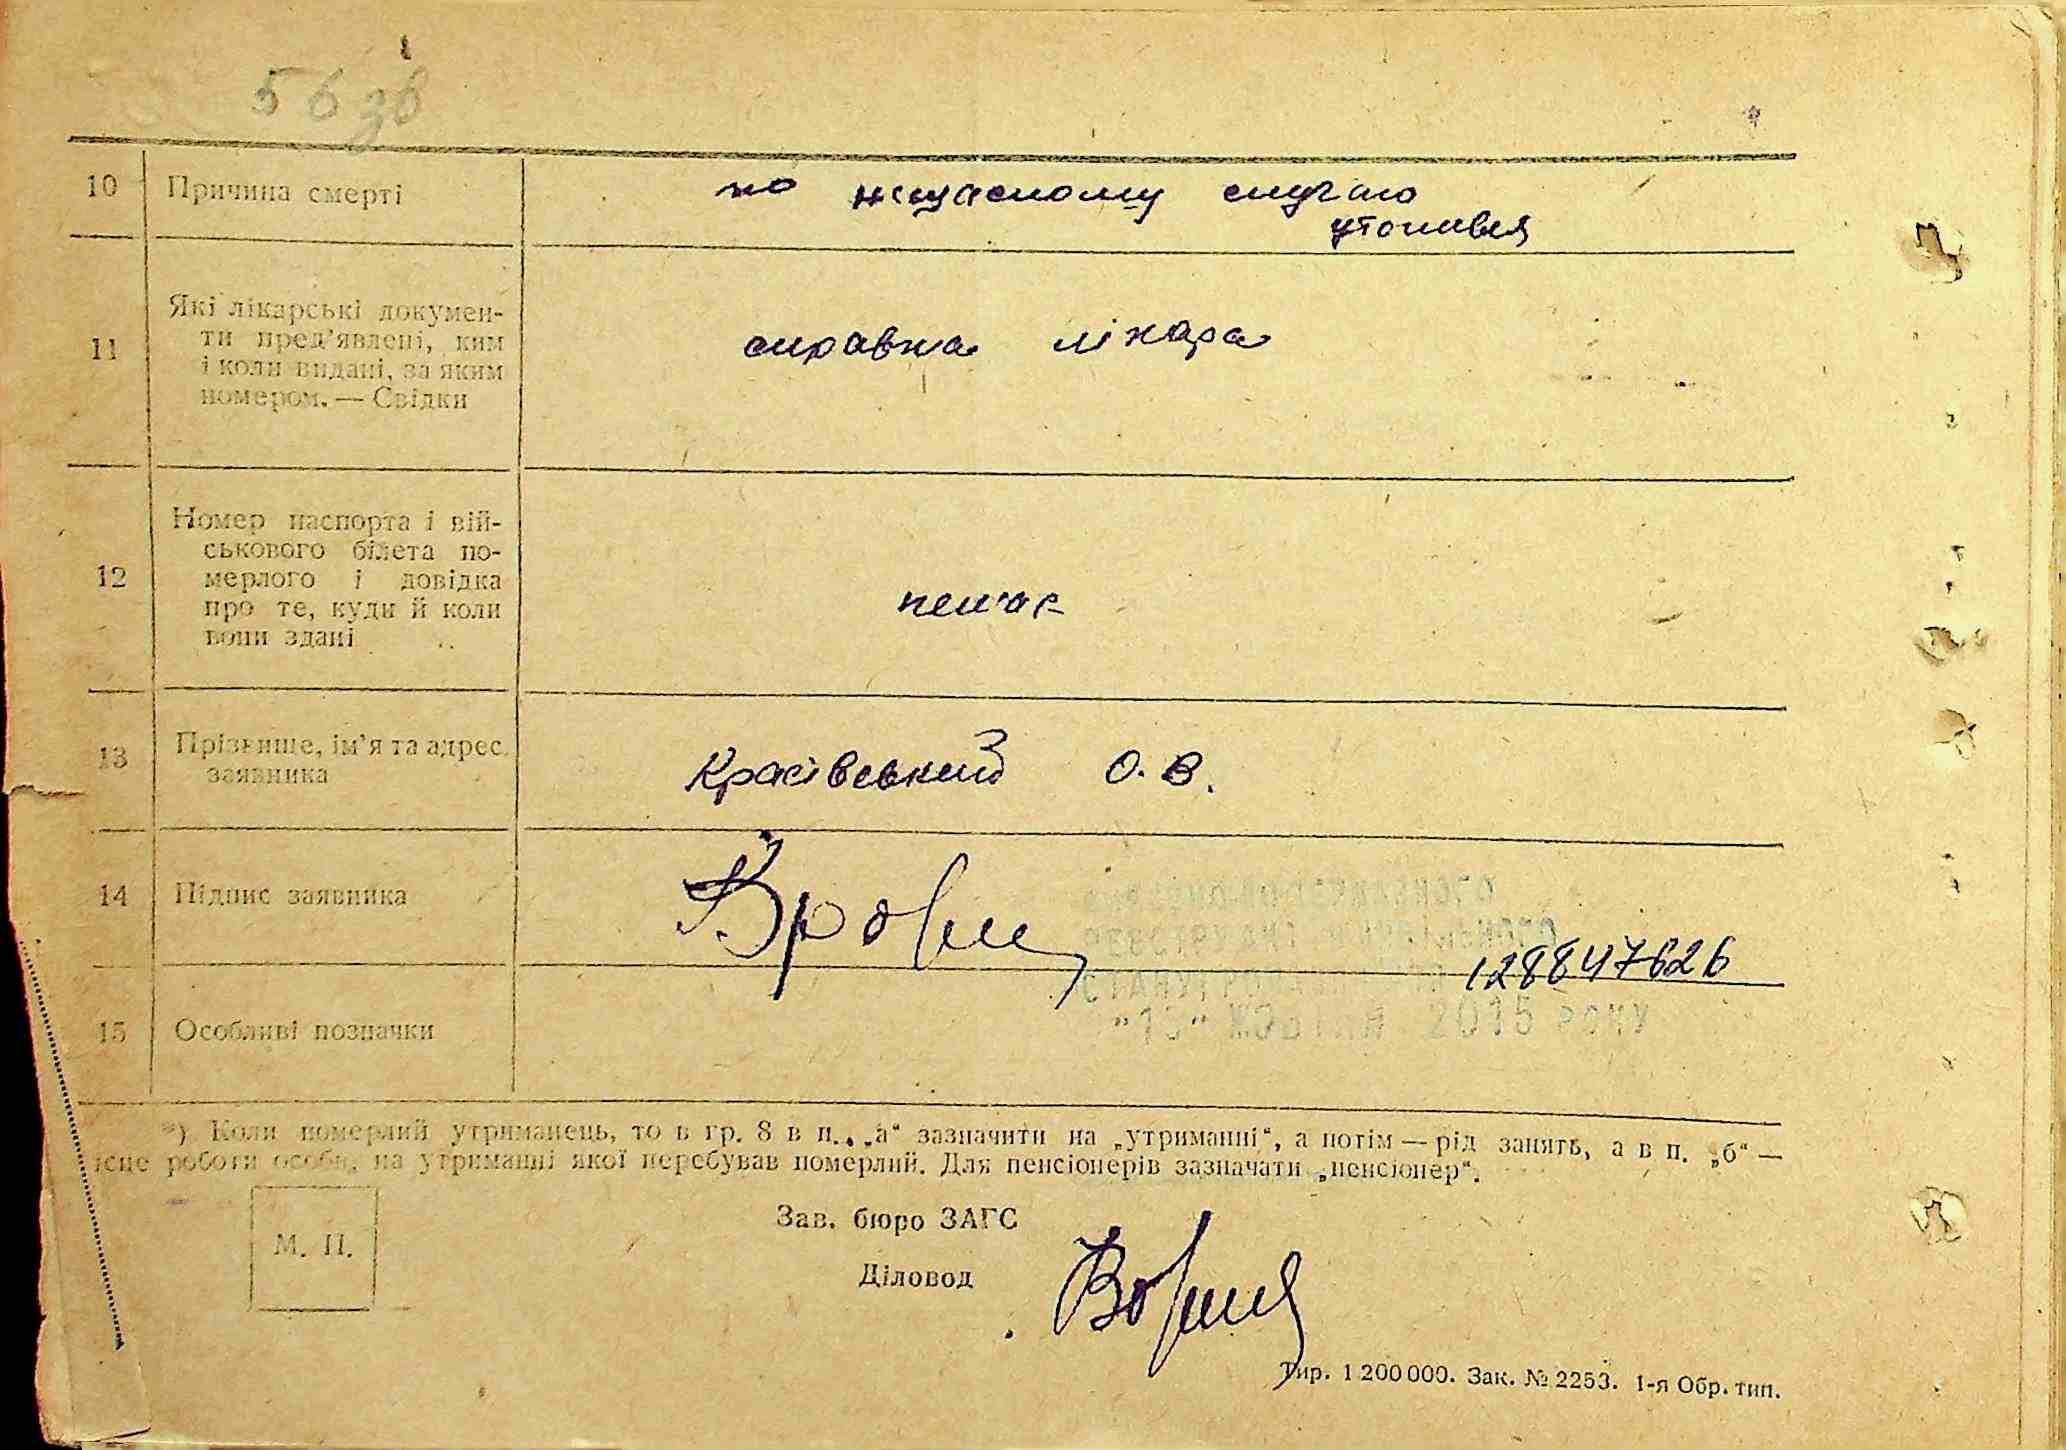 56 зв
10 Причина смерті
по нещасному случаю
утопився
11 Які лікарські докумен-
ти пред'явлені, ким
і коли видані, за яким
номером. — Свідки
справка лікара
12 Номер паспорта і вій-
ськового білета по-
мерлого і довідка
про те, куди й коли
вони здані
немає
13 Прізвище, ім'я та адрес
заявника
Красівський О. В.
14 Підпис заявника
12884762б
15 Особливі позначки
жовтня 2015 року
*) Коли померлий утриманець, то в гр. 8 в п. „а“ зазначити на „утриманні“, а потім — рід занять, а в п. „б“ —
роботи особи, на утриманні якої перебував померлий. Для пенсіонерів зазначати „пенсіонер“.
М. П.
Зав. бюро ЗАГС
Діловод
Тир. 1 200 000. Зак. № 2253. 1-я Обр. тип.